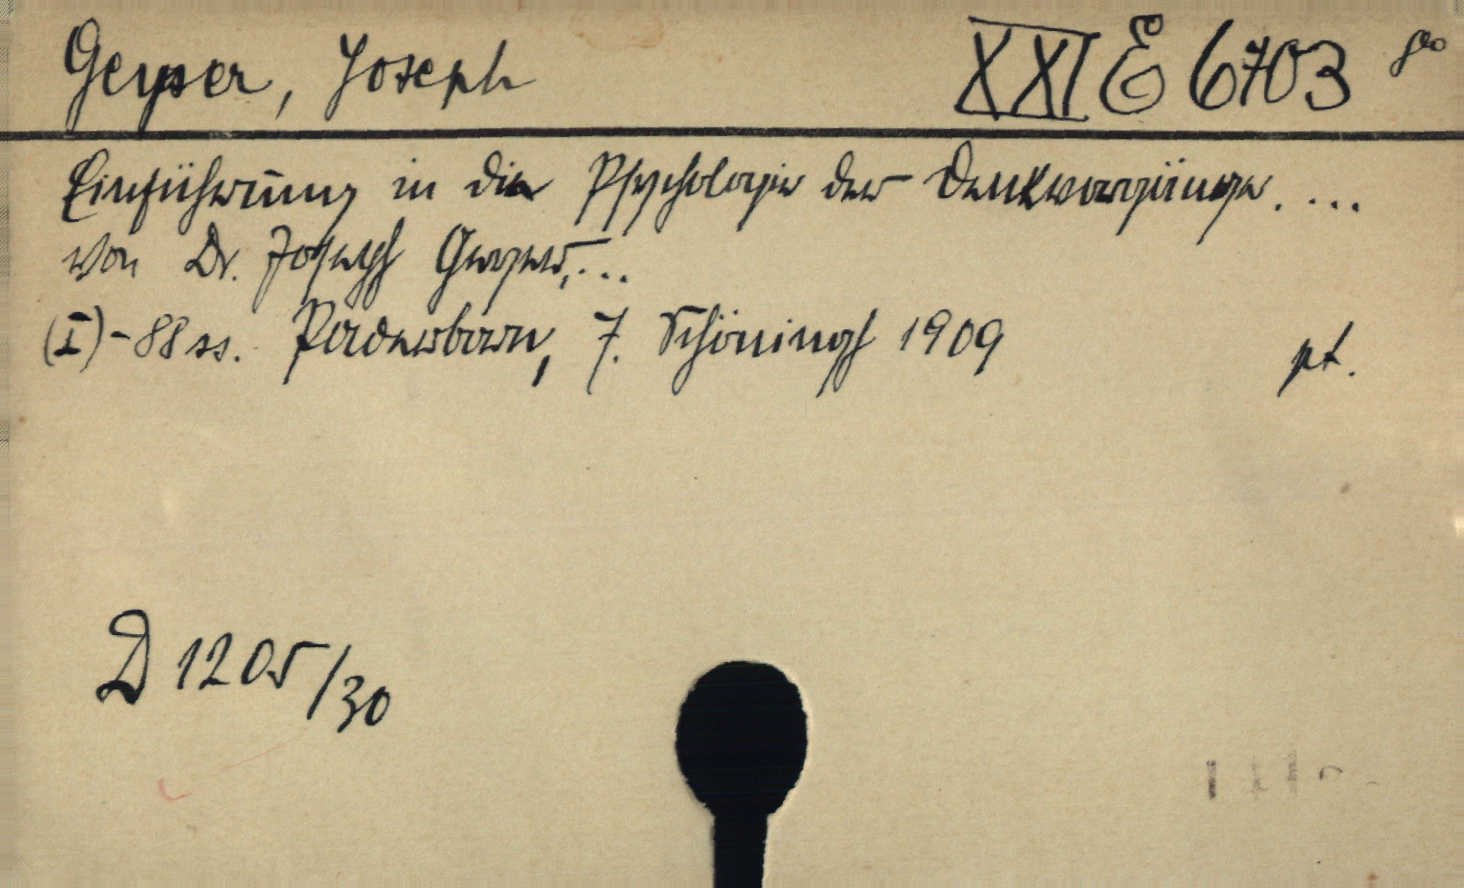 Geyser, Joseph XXI E 6703 8°
Einführung in die Psychologie der Denkvorgänge. ...
von Dr. Joseph Geyser, ...
(I)-88 ss. Paderborn, F. Schöningh 1909 pt.
D 1205/30